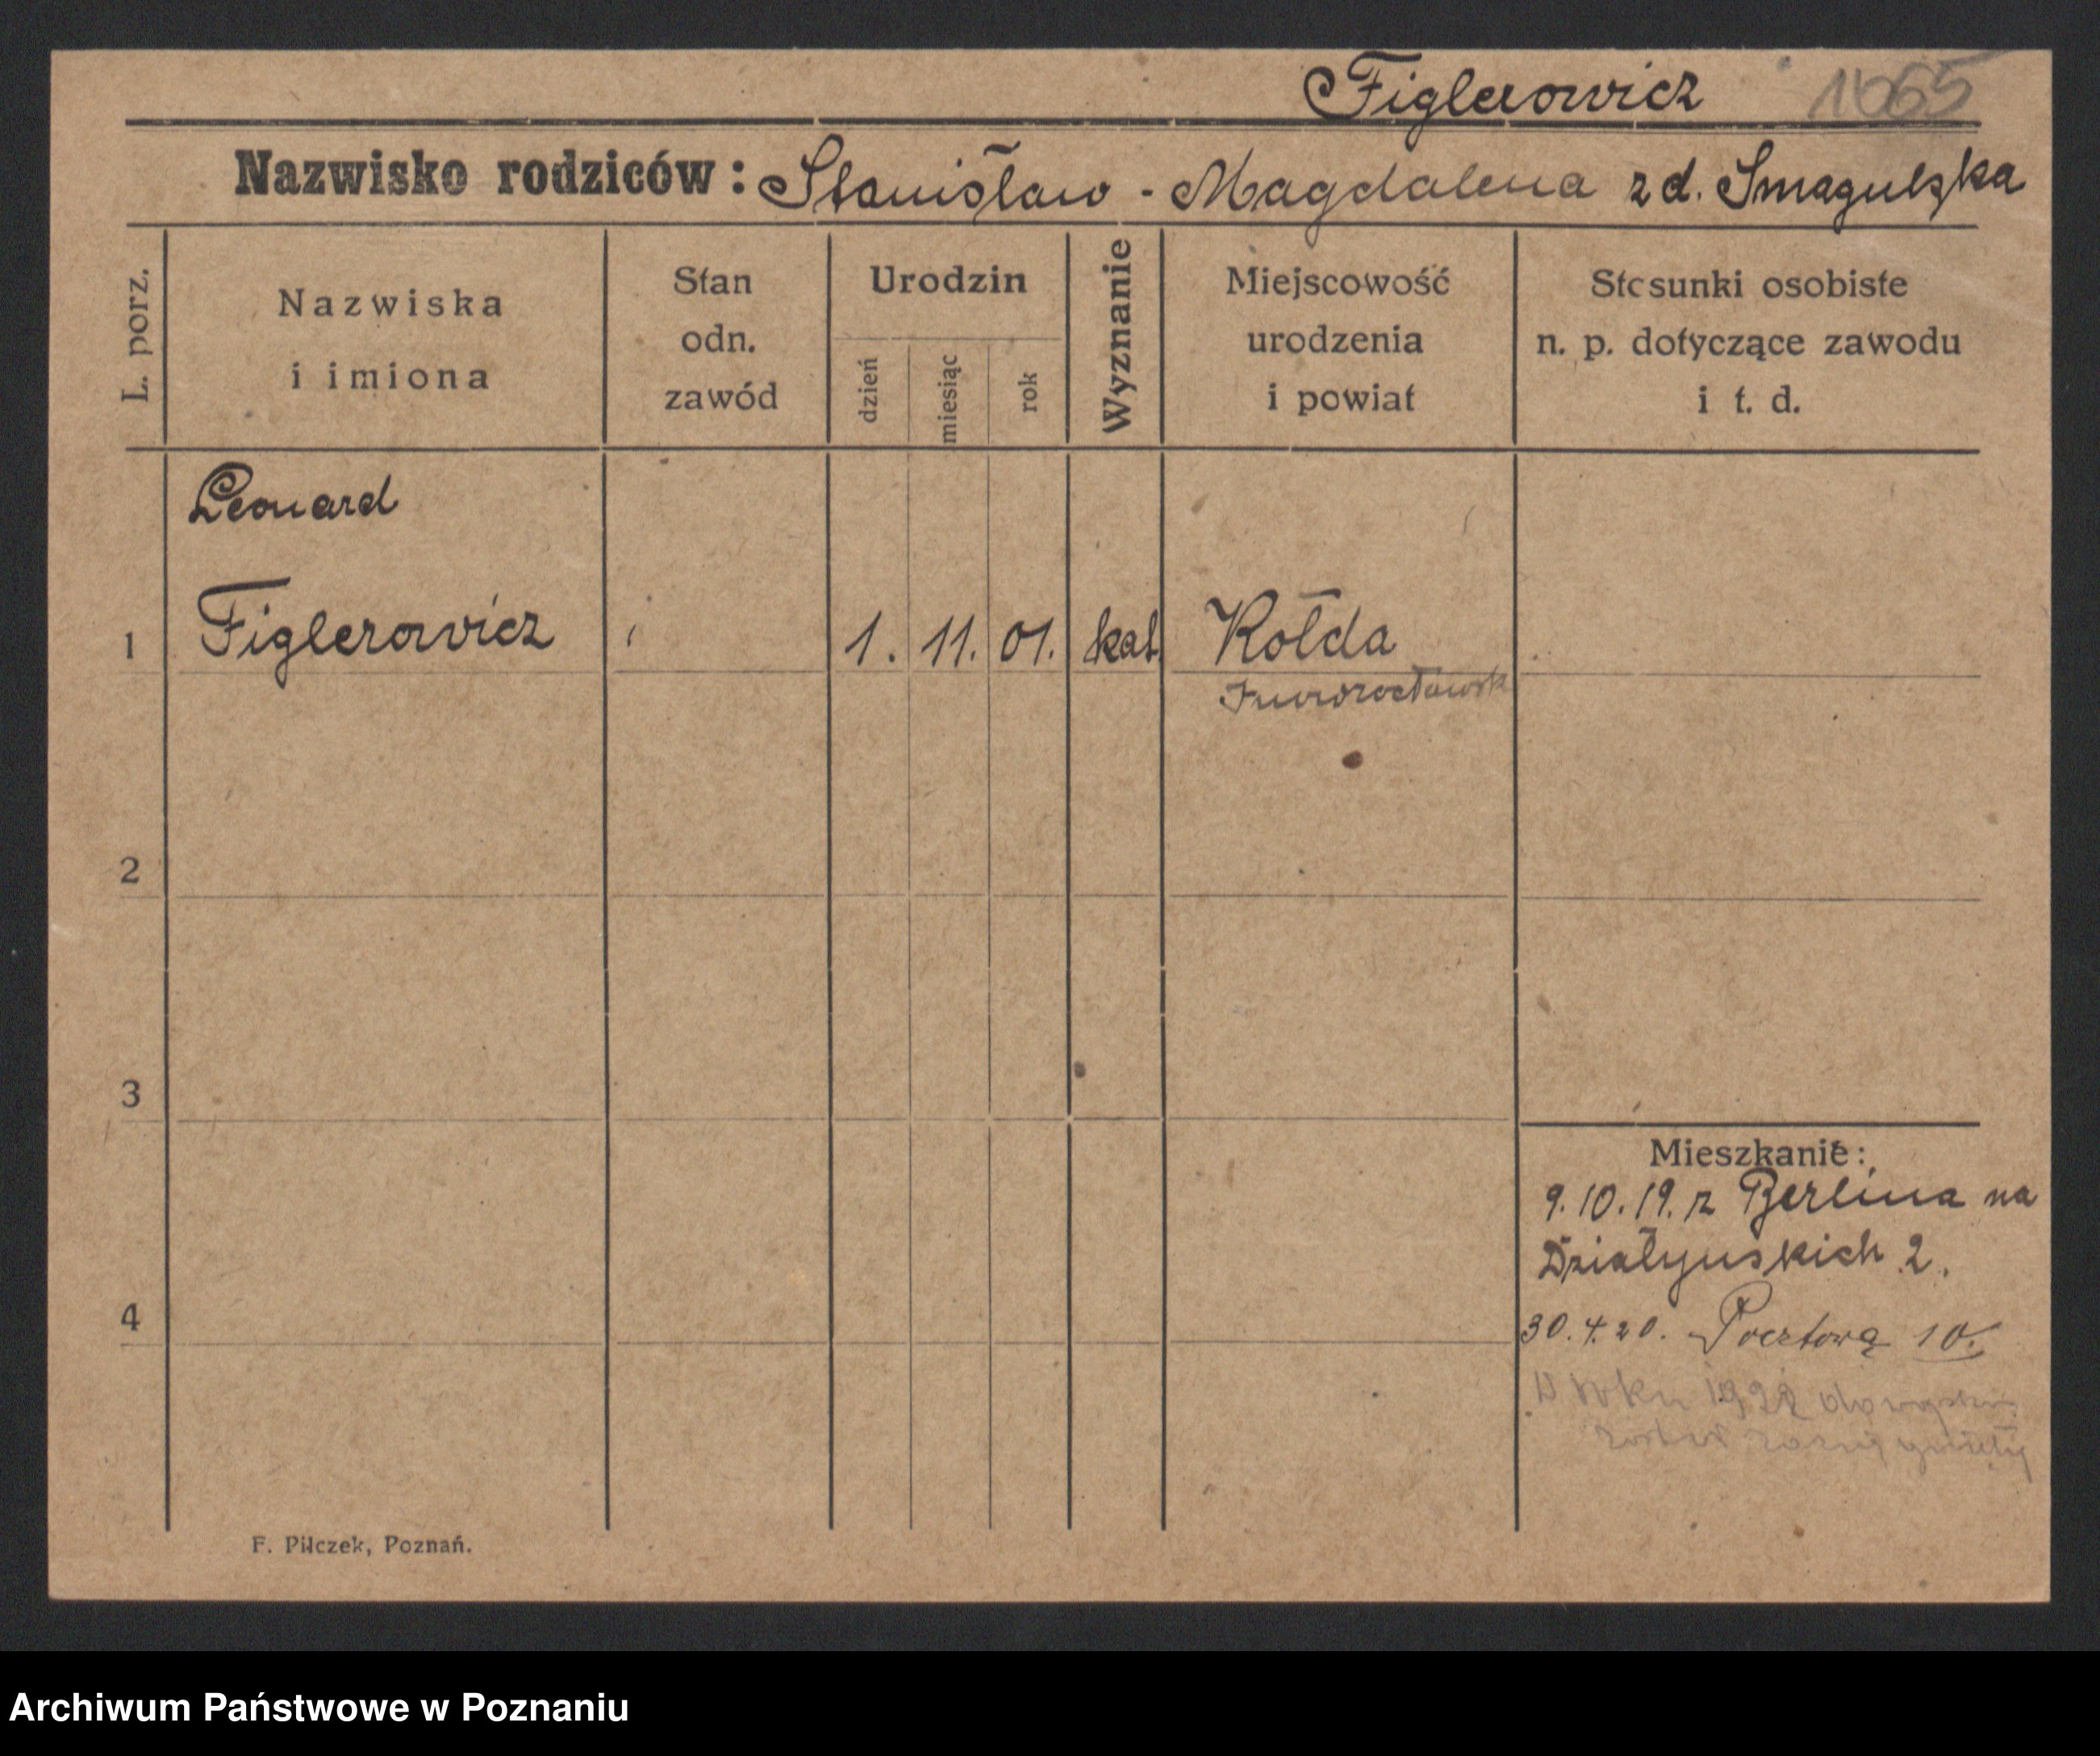 Figlerowicz 1665
Nazwisko rodziców: Stanisław - Magdalena z d. Smagulska
L. porz.
Nazwiska
i imiona
Stan
odn.
zawód
Urodzin
dzień
miesiąc
rok
Wyznanie
Miejscowość
urodzenia
i powiat
Stosunki osobiste
n. p. dotyczące zawodu
i t. d.
Leonard
1 Figlerowicz 1. 11. 01. kat. Kołda
Inowrocławsk
2
3
Mieszkanie:
9.10.19. z Berlina na
Działyńskich 2.
4
30.4.20. Pocztowa 10.
W roku 1922
F. Pilczek, Poznań.
Archiwum Państwowe w Poznaniu